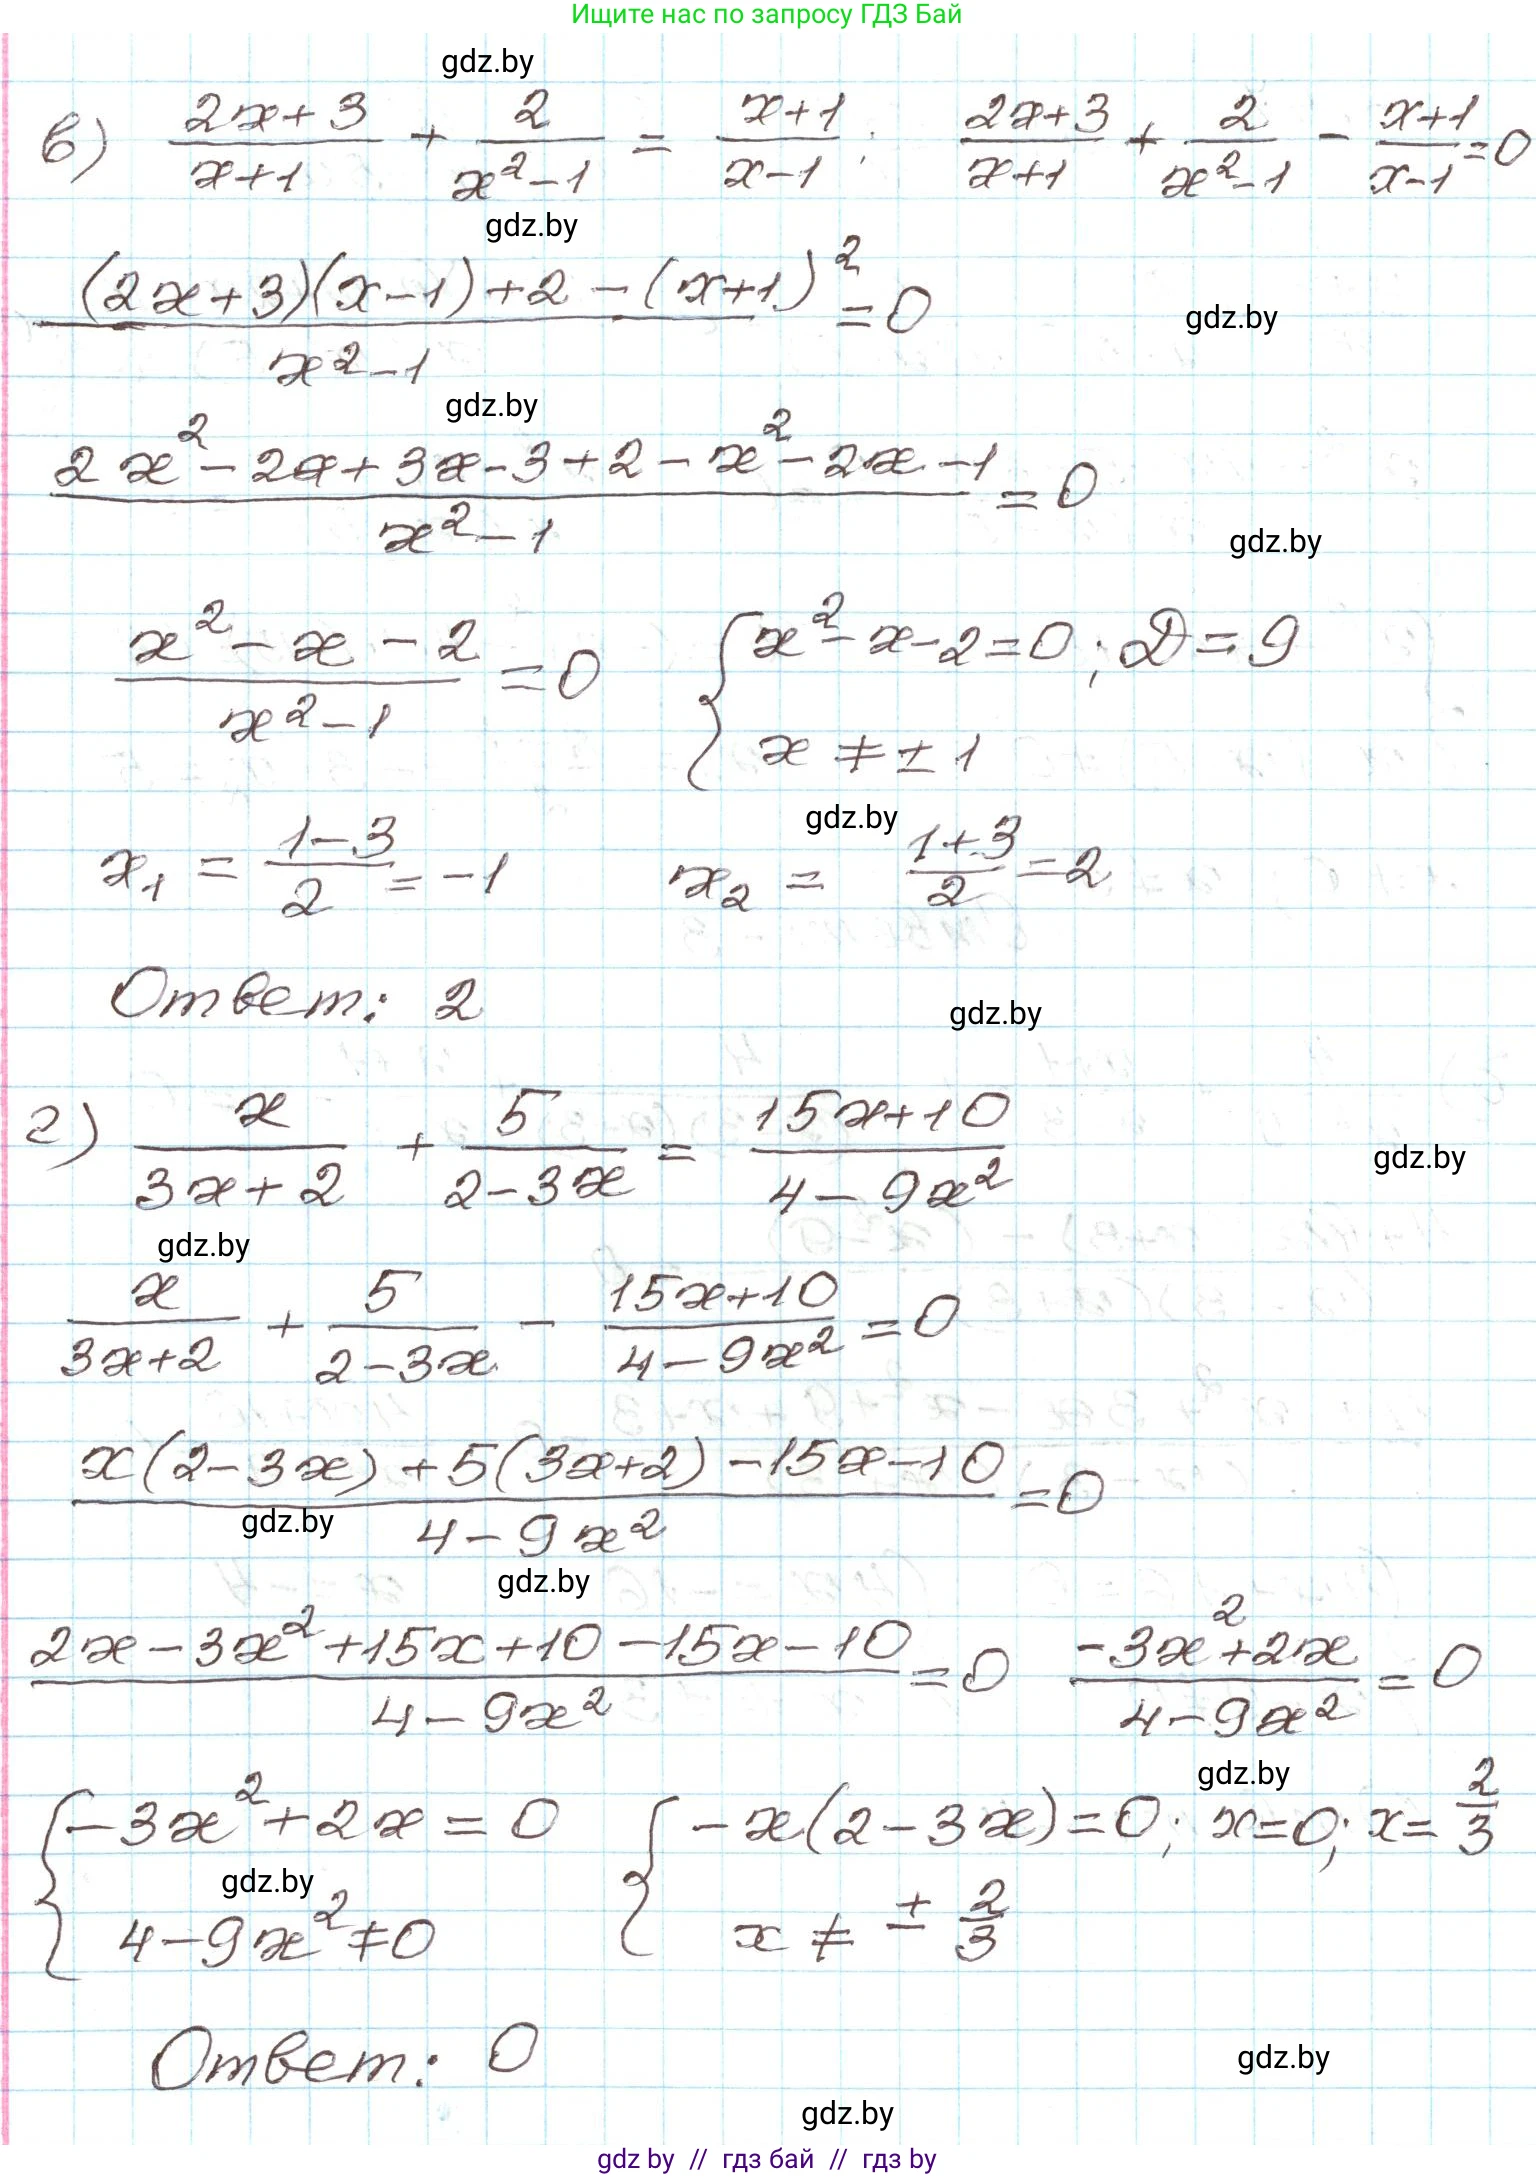 Ищите нас по запросу ГДЗ Бай
gdz.by
в) (2x+3)/(x+1) + 2/(x²-1) = (x+1)/(x-1); (2x+3)/(x+1) + 2/(x²-1) - (x+1)/(x-1) =0
gdz.by
((2x+3)(x-1)+2-(x+1)²)/(x²-1) =0
gdz.by
gdz.by
(2x²-2x+3x-3+2-x²-2x-1)/(x²-1) =0
gdz.by
(x²-x-2)/(x²-1) =0 { x²-x-2=0; D=9
x ≠ ±1
gdz.by
x₁ = (1-3)/2 = -1 x₂ = (1+3)/2 =2
Ответ: 2
gdz.by
г) x/(3x+2) + 5/(2-3x) = (15x+10)/(4-9x²)
gdz.by
gdz.by
x/(3x+2) + 5/(2-3x) - (15x+10)/(4-9x²) =0
(x(2-3x)+5(3x+2)-15x-10)/(4-9x²) =0
gdz.by
gdz.by
(2x-3x²+15x+10-15x-10)/(4-9x²) =0 (-3x²+2x)/(4-9x²) =0
gdz.by
{ -3x²+2x=0 { -x(2-3x)=0; x=0; x=2/3
gdz.by
4-9x²≠0 x ≠ ± 2/3
Ответ: 0
gdz.by
gdz.by
gdz by // гдз бай // гдз by